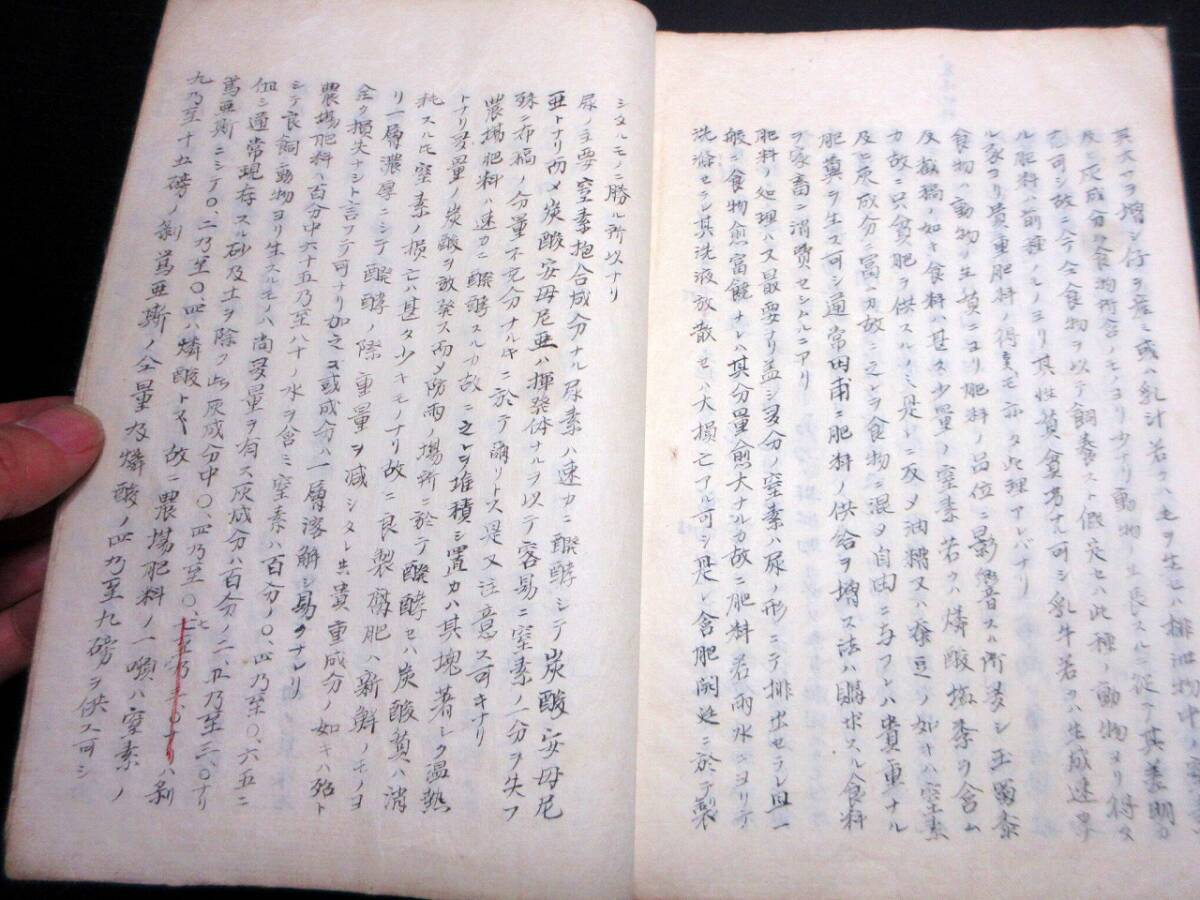 其大サヲ増シ仔ヲ産ミ或ハ乳汁若クハ毛ヲ生セハ排泄物中ノ窒素
及ヒ灰成分ハ食物所含ノモノヨリ少ナリ動物ノ生長スルニ従テ其差明
可シ故ニ今全食物ヲ以テ飼養スト仮定セハ此種ノ動物ヨリ得ヌ
ル肥料ハ前種ノモノヨリ其性質貧ナル可シ乳牛若クハ生成速
ル豕ヨリ貴重肥料ノ得 モ亦タ此理アレバナリ
食物ハ動物ノ生ノ質ニヨリ肥料ノ品位ニ影響スル所多シ玉蜀黍
及藁稿ノ如キ食料ハ甚タ少量ノ窒素若クハ燐酸塩ヲ含ム
カ故ニ只貧肥ヲ供スルノミ是レニ反メ油糟又ハ蚕豆ノ如キハ窒素
及ヒ灰成分ニ富ムカ故ニ之レヲ食物ニ混メ自由ニ与フレハ貴重ナル
肥糞ヲ生ス可シ通常田甫ニ肥料ノ供給ヲ増ス法ハ購求スル食料
ヲ家畜ニ消費セシムルニアリ
肥料ノ処理ハ又最要ナリ蓋シ多分ノ窒素ハ尿ノ形ニテ排出セラレ且一
般ニ食物愈富饒ナレハ其分量愈大ナルカ故ニ肥料若雨水ニヨリテ
洗滌セラレ其洗液放散セハ大損亡アル可シ是レ舎肥開廷ニ於テ製
シタルモノニ勝ル所以ナリ
尿ノ主要窒素抱合成分ナル尿素ハ速カニ醗酵シテ炭酸安母尼
亜トナリ而メ炭酸安母尼亜ハ揮発体ナルヲ以テ容易ニ窒素ノ一分ヲ失フ
殊ニ布稿ノ分量不充分ナルキニ於テ爾リトス是又注意ス可キナリ
農場肥料ハ速カニ醗酵スルカ故ニ之レヲ堆積シ置カハ其塊著シク温熱
トナリ多量ノ炭酸ヲ放発ス而メ防雨ノ場所ニ於テ醗酵セハ炭酸質ハ消
耗スル 窒素ノ損亡ハ甚タ少キモノナリ故ニ良製 肥ハ新鮮ノモノヨ
リ一層濃厚ニシテ醗酵ノ際重量ヲ減シタレ 貴重成分ノ如キハ殆ト
全ク損失ナシト言フテ可ナリ加之ヨ或成分ハ一層溶解シ易クナレリ
農場肥料ハ百分中六十五乃至八十ノ水ヲ含ミ窒素ハ百分ノ〇、四乃至〇、六五ニ
シテ良飼ノ動物ヨリ生スルモノハ尚多量ヲ有ス灰成分ハ百分ノ二、五乃至三、〇ナリ
但シ通常現存スル砂及土ヲ除ク此灰成分中〇、四乃至〇、七 ハ剥
篤亜斯ニシテ〇、二乃至〇、四ハ燐酸トス 故ニ農場肥料ノ一噸ハ窒素ノ
九乃至十五磅ノ剥篤亜斯ノ全量及燐酸ノ四乃至九磅ヲ供ス可シ